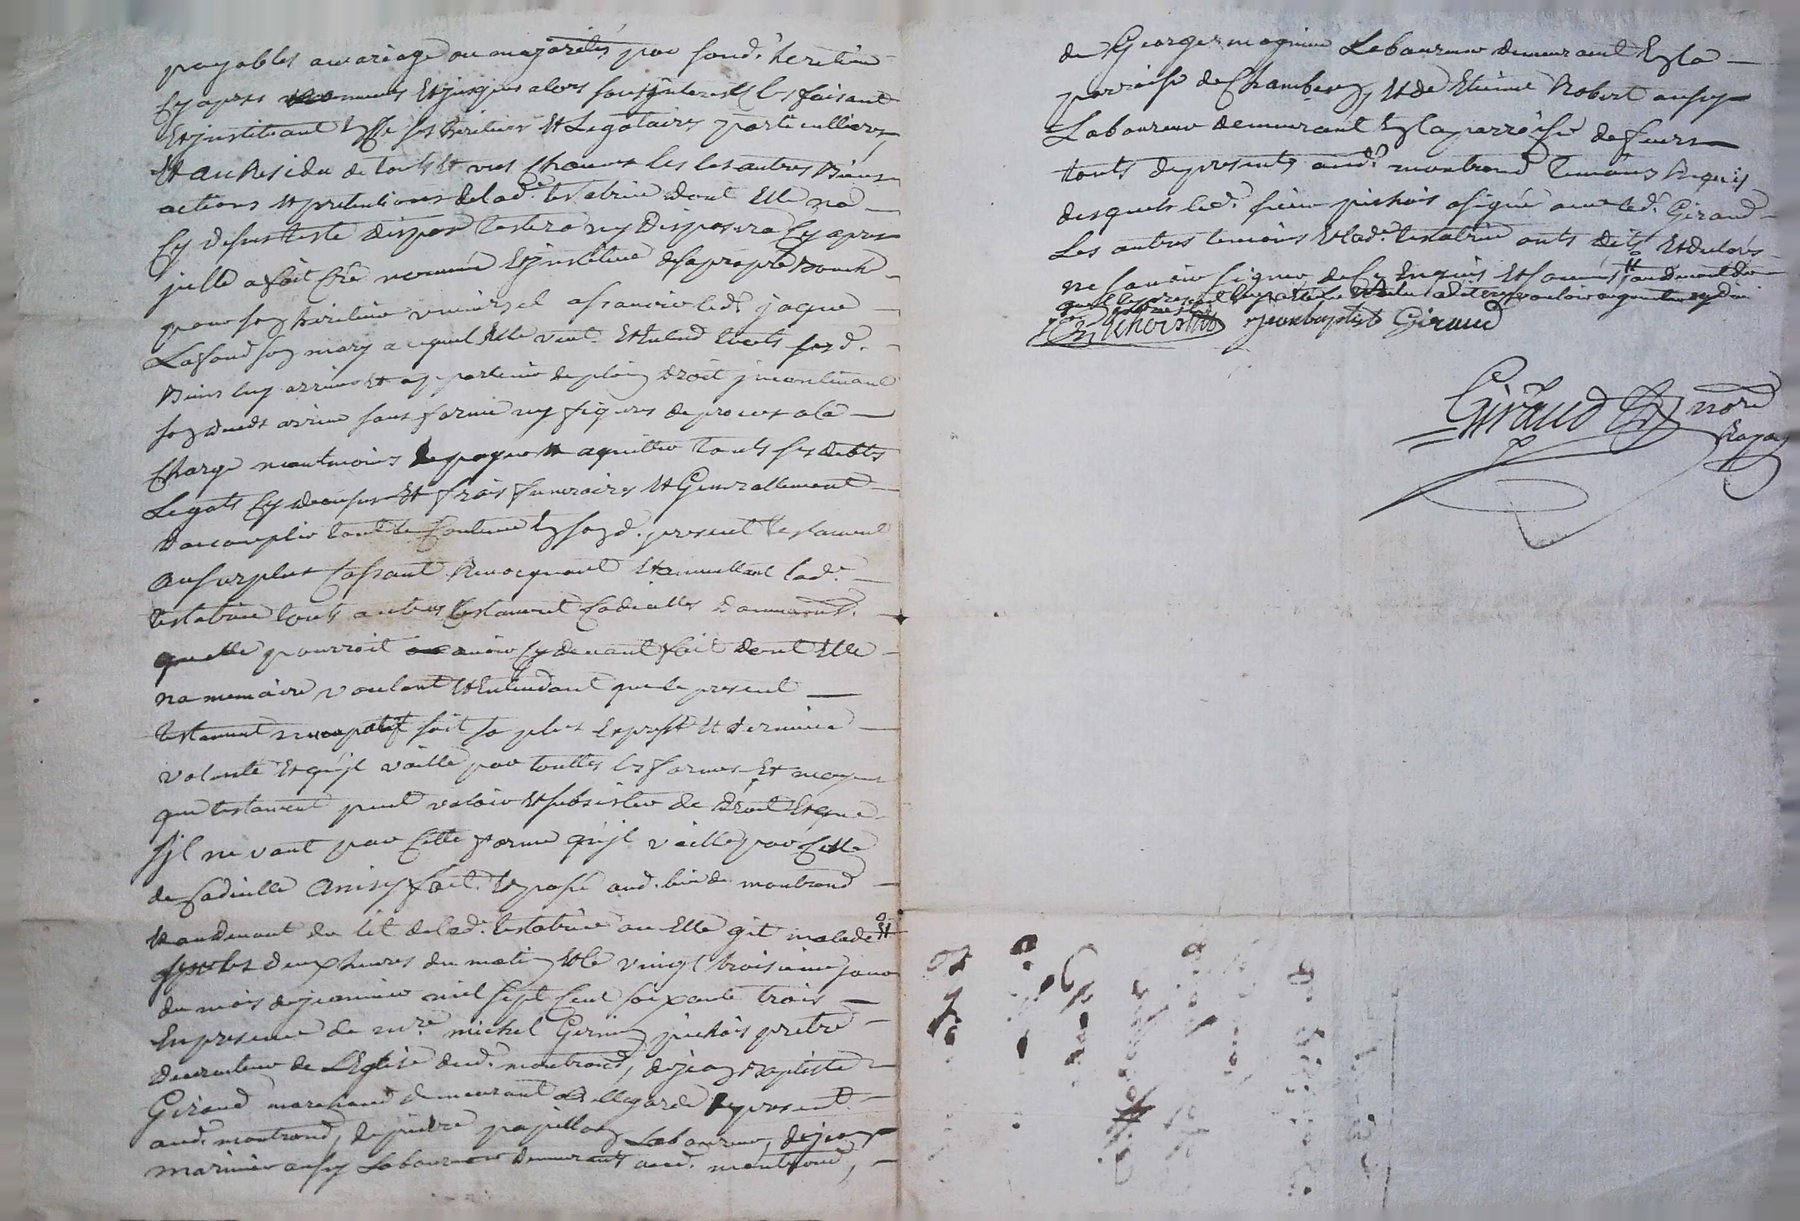 payables au mariage ou majorités par sond. heretier
cy apres nommés Et jusques alors sans interest Les faisant
Et instituant ses heritiers Et Legataires particulliers,
Et au Residu de touts Et uns Chacuns les autres Biens
actions Et pretentions de lad.e testatrice dont Elle na
cy dessus teste disposé testera ny Disposera Cy apres
jcelle a fait Créé nommé Et jnstitué de sa propre Bouche
pour son heritier universel assavoir led. jaque
Lafond son mary auquel Elle veut Et Entend touts sesd.
Biens luy arriver Et appartenir de plein Droit jncontinant
son deceds arrivé sans forme ny figures de procés a la
Charge neantmoins de payer Et aquitter touts ses debtes
Legats Cy dessus Et frais funeraires Et Generallement
Daccomplir tout le Contenu En sond. present testament
au surplus Cassant Revocquant Et annullant lad.e
testatrice touts autres testament Codicilles Donnations
quelle pourroit avoir Cy devant fait dont Elle
na memoire voulant Et Entendant que le present
testament nuncupatif soit sa plus Expresse Et derniere
volonté Et qu'jl vaille par touttes les formes Et moyens
que testament peut valoir Et subsister de Droit Et que
sjl ne vaut par Cette forme qu'jl vaille par Celle
de Codicille Ainsy fait Et passé aud. lieu de montrond
Et au Devant du lit de lad.e testatrice ou Elle git malade
sur les deux heures du matin Et le vingt troisieme jour
du mois de janvier mil sept Cent soixante trois
En presence de m.re michel pichois pretre
Desserviteur de L'Eglise dud. montrond, de jean Baptiste
Giraud marchand demeurant a Bellegarde de present
aud. montrond, de pierre papillon Laboureur, de jean
marinier aussy Laboureur demeurants aud. montrond,
de George magnien Laboureur demeurant En la
parroisse de Chambeon, Et de Etienne Robert aussy
Laboureur demeurant En la parroisse de feurs
touts de presents aud. montrond temoins Requis
desquels led. sieur pichois a signé avec led. Giraud
Les autres temoins Et lad.e testatrice onts dits Et declarés
ne sçavoir signer de Ce Enquis Et sommés
pichois jean baptiste Giraud
Giraud no.re
Royal